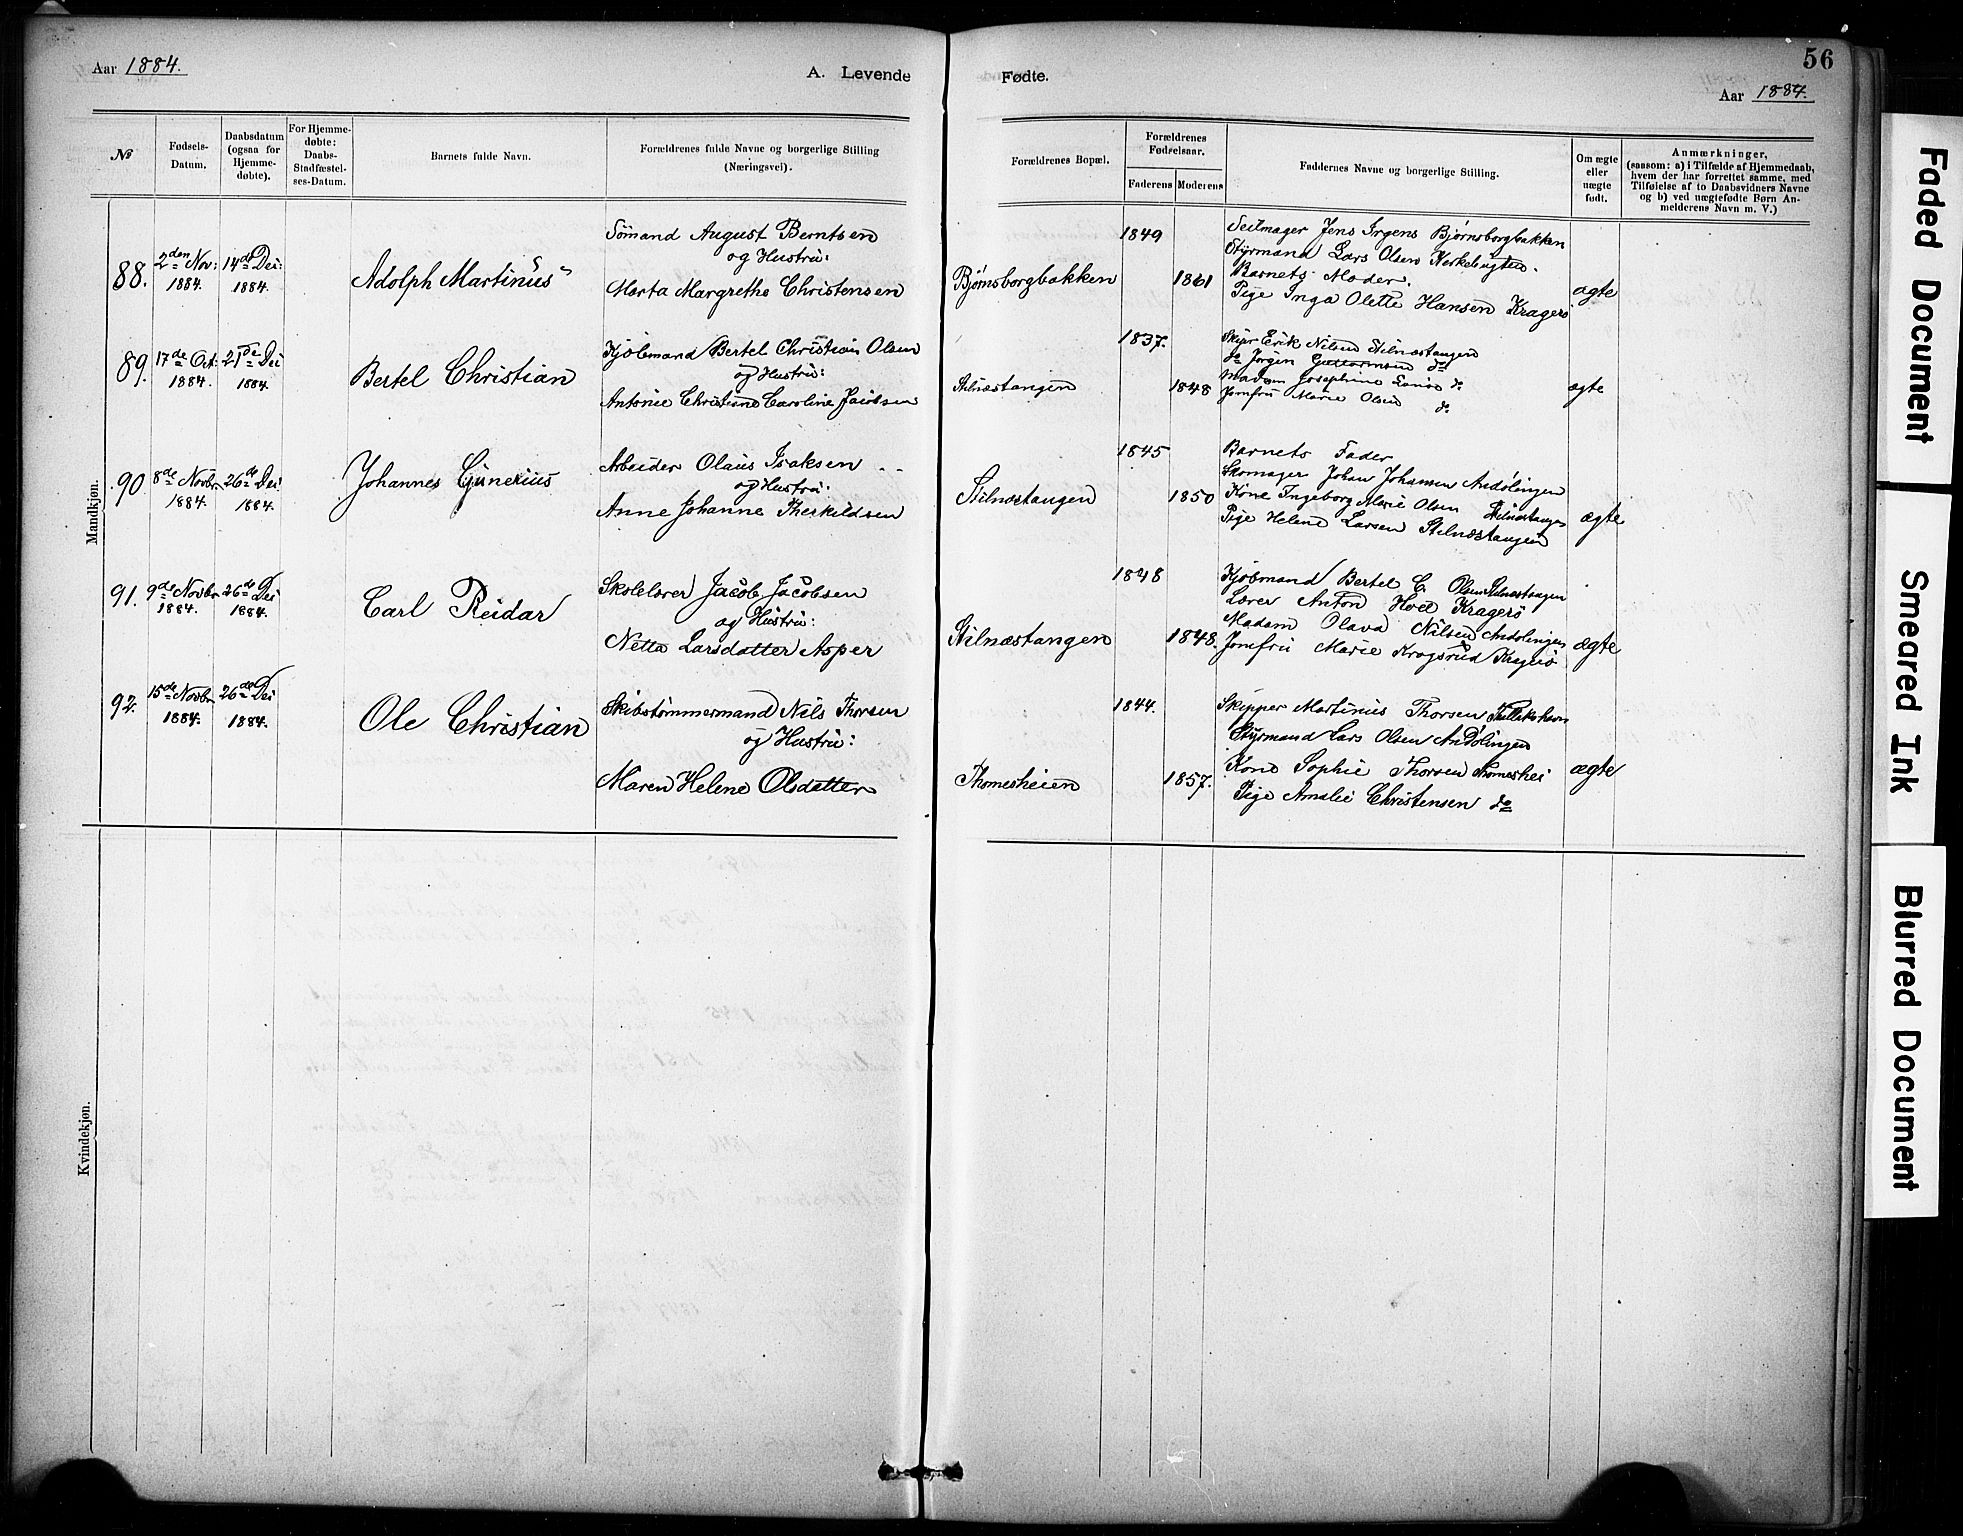 56
Aar 1884.
A. Levende Fødte.
Aar 1884.
№
Fødsels-
Datum.
Daabsdatum
(ogsaa for
Hjemme-
døbte).
For Hjemme-
døbte:
Daabs-
Stadfæstel-
ses-Datum.
Barnets fulde Navn.
Forældrenes fulde Navne og borgerlige Stilling
(Næringsvei).
Forældrenes Bopæl.
Forældrenes
Fødselsaar.
Faderens
Moderens
Faddernes Navne og borgerlige Stilling.
Om ægte
eller
uægte
født.
Anmærkninger,
(saasom: a) i Tilfælde af Hjemmedaab,
hvem der har forrettet samme, med
Tilføielse af to Daabsvidners Navne
og b) ved uægtefødte Børn An-
melderens Navn m. V.)
Mandkjøn.
88.
2den Nov:
1884.
14de Dei:
1884.
Adolph Martinus
Sömand August Berntsen
og Hustru:
Marta Margrethe Christensen
Bjørnsborgbakken
1849
1861
Seilmager Jens Irgens Bjørnsborgbakken
Styrmand Lars Olsen
Barnets Moder.
Pige Inga Olette Hansen Kragerö
ægte
89.
17de Oct:
1884.
21de Dei
1884.
Bertel Christian
Kjöbmand Bertel Christian Olsen
og Hustru:
Antonie Christiane Caroline Jacobsen
Stilnæstangen
1837.
1848
Skipr Erik Nilsen Stilnæstangen
do Jörgen Guttormsen do
Madam Josephine do
Jomfru Marie Olsen do
ægte
90
8de Novbr.
1884.
26de Dei
1884.
Johannes Gunerius
Arbeider Olaus Isaksen
og Hustru:
Anne Johanne Therkildsen
Stilnæstangen
1845
1850
Barnets Fader
Skomager Johan Johansen Andölingen
Kone Ingeborg Marie Olsen Stilnæstangen
Pige Helene Larsen Stilnæstangen
ægte
91.
9de Novbr
1884.
26de Dei
1884.
Carl Reidar
Skolelærer Jacob Jacobsen
og Hustru:
Netta Larsdatter Asper
Stilnæstangen
1848
1848.
Kjöbmand Bertel C. Olsen Stilnæstangen
Lærer Anton Kragerö
Madam Olava Nilsen Andölingen
Jomfru Marie Krogsrud Kragerö
ægte
92.
15de Novbr
1884.
26de Dei
1884.
Ole Christian
Skibstömmermand Nils Thorsen
og Hustru:
Maren Helene Olsdatter
Thomesheien
1844.
1857.
Skipper Martinius Thorsen
Styrmand Lars Olsen Andölingen
Kone Sophie Thorsen Thomeshei
Pige Amalie Christensen do
ægte
Kvindekjøn.
Faded Document
Smeared Ink
Blurred Document